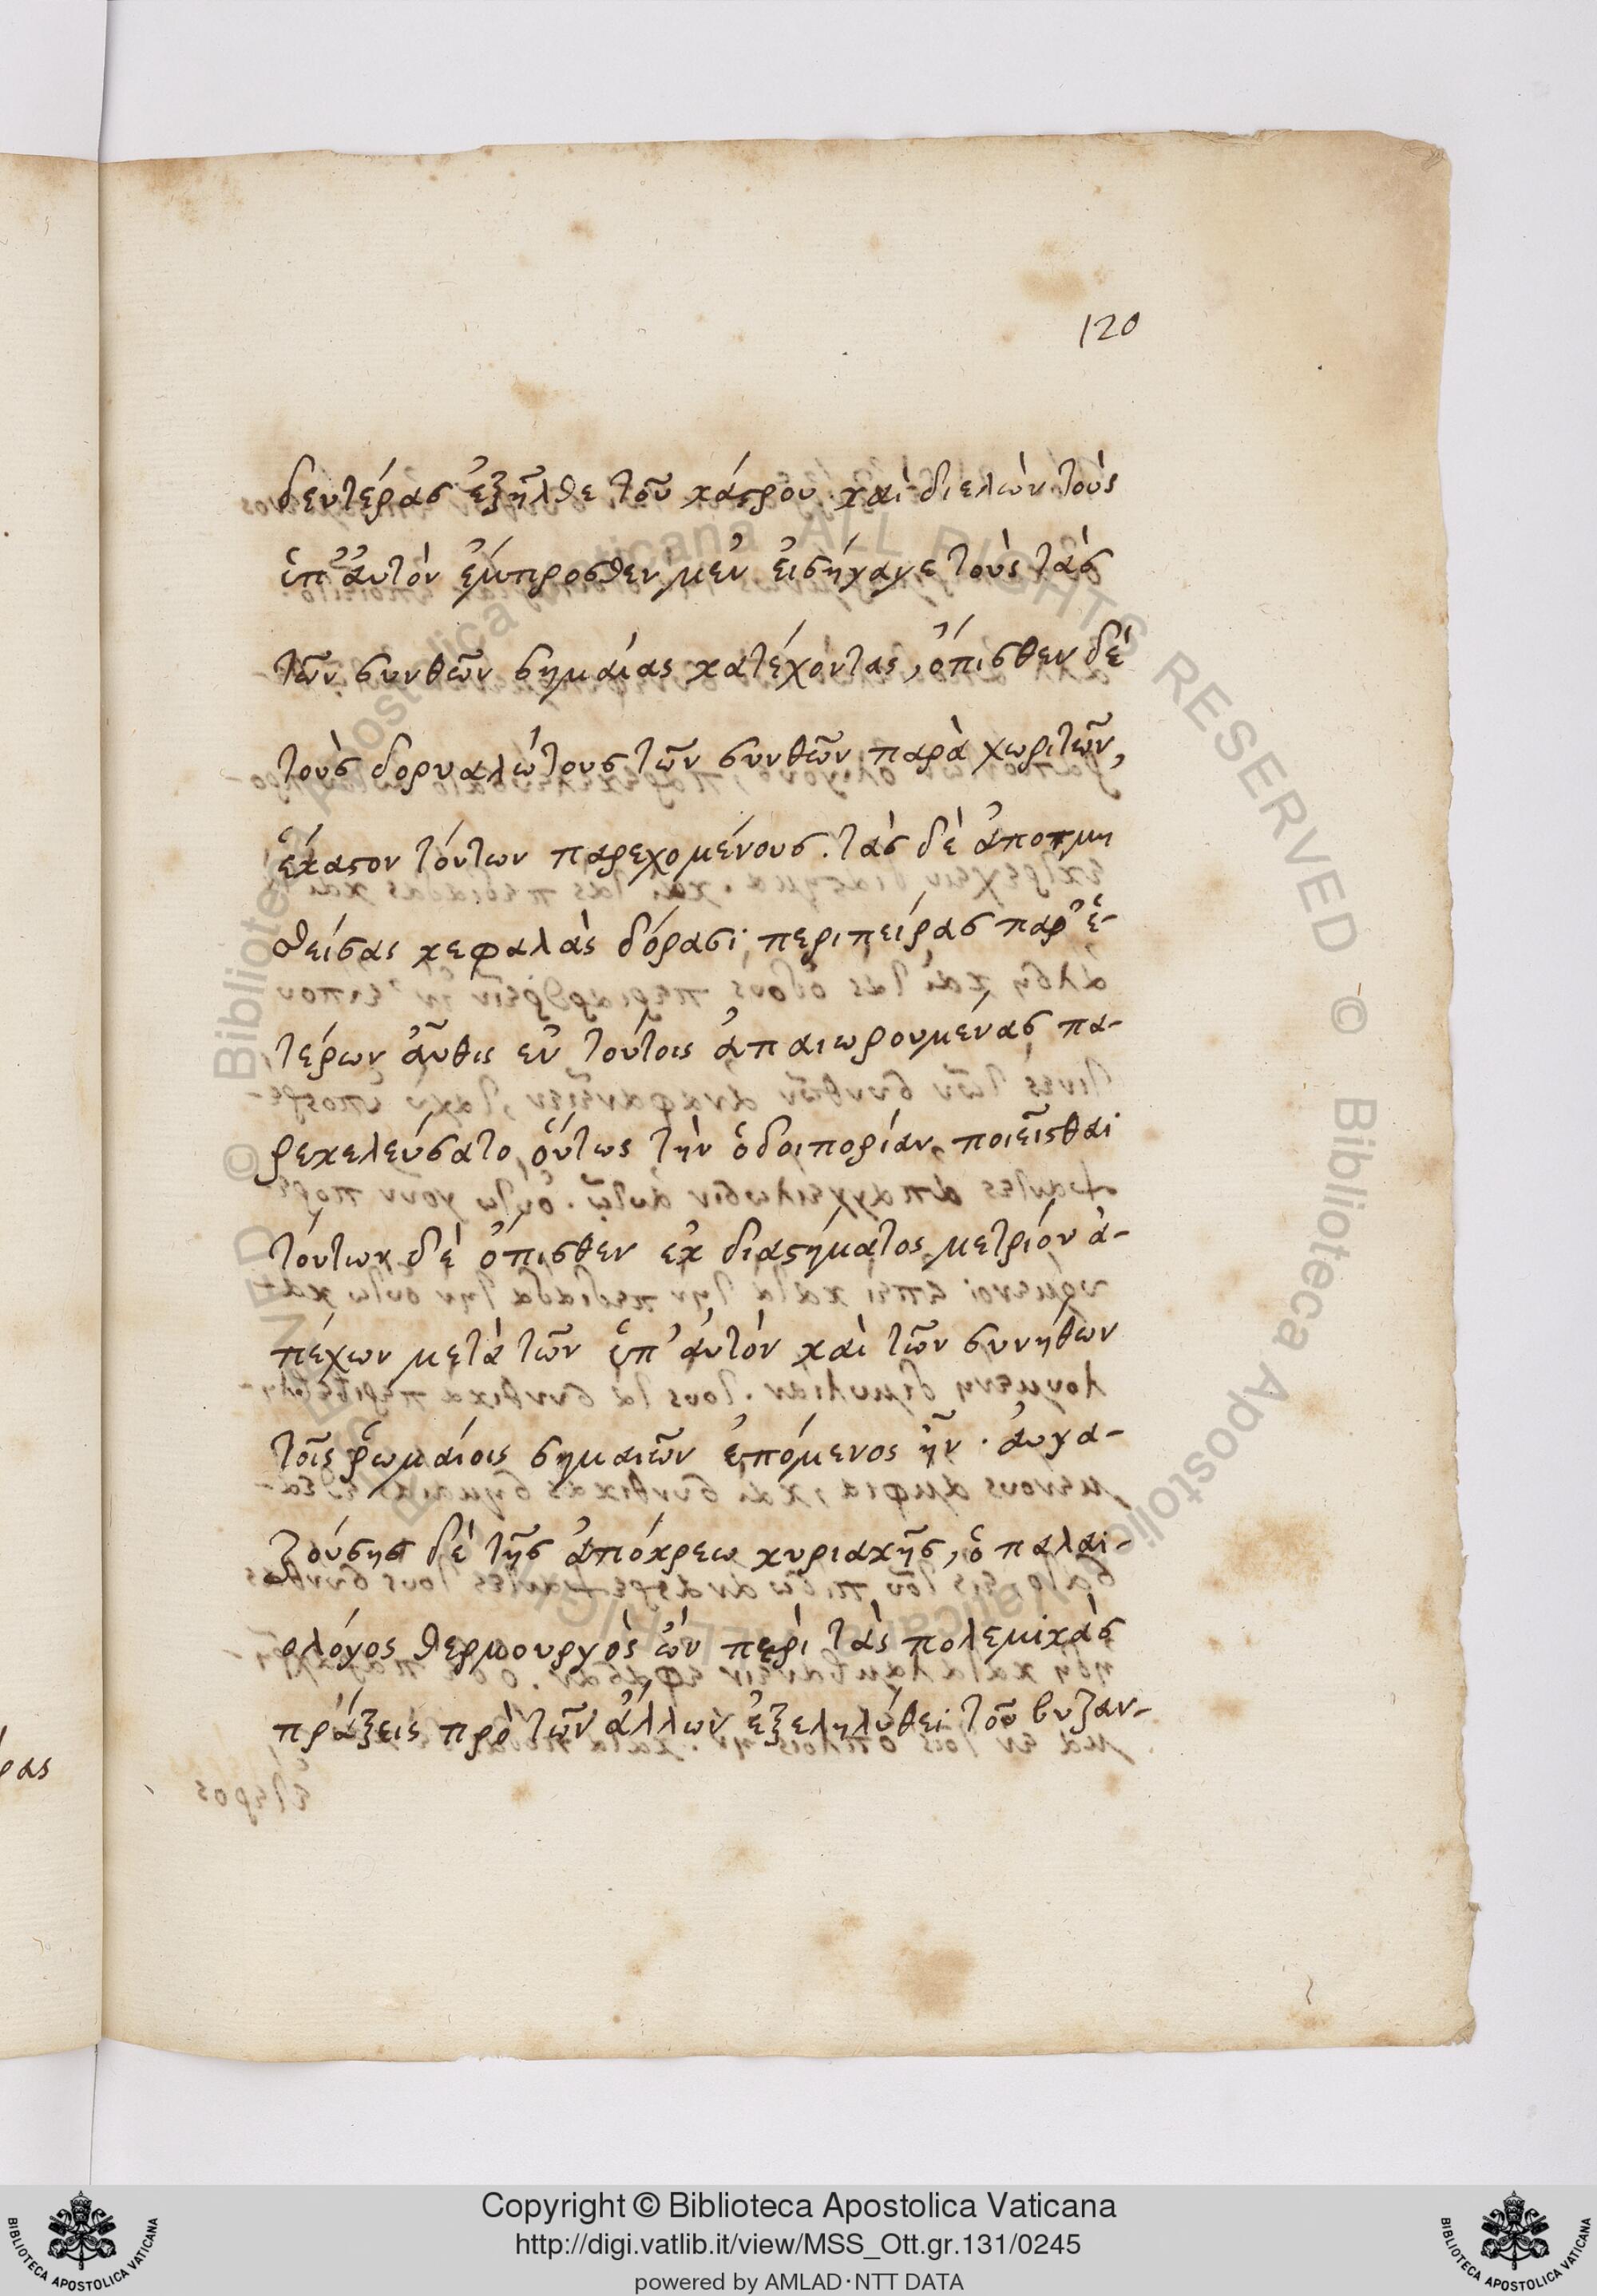 120
δευτέρας ἐξῆλθε τοῦ κάστρου. καὶ διελὼν τοὺς
ὑπ' ἀυτὸν ἔμπροσθεν μὲν ἐισήγαγε τοὺς τὰς
τῶν σκυθῶν σημαίας κατέχοντας, ὄπισθεν δὲ
τοὺς δορυαλώτους τῶν σκυθῶν παρὰ χωριτῶν,
ἕκαστον τόυτων παρεχομένους. τὰς δὲ ἀποτμη
θείσας κεφαλὰς δόρασι περιπείρας παρ' ἑ-
τέρων ἀῦθις ἐν τούτοις ἀπαιωρουμένας πα-
ρεκελεύσατο ὅυτως τὴν ὁδοιπορίαν ποιεῖσθαι
τόυτων δὲ ὄπισθεν ἐκ διαστήματος μετρίου ἀ-
πέχων μετὰ τῶν ὑπ' ἀυτὸν καὶ τῶν συνήθων
τοῖς ῥωμαίοις σημαιῶν ἑπόμενος ἦν. ἀυγα-
ζούσης δὲ τῆς ἀπόκρεω κυριακῆς, ὁ παλαι-
ολόγος θερμουργὸς ὢν περὶ τὰς πολεμικὰς
πράξεις πρὸ τῶν ἄλλων ἐξεληλύθει τοῦ βυζαν-
ρας
Copyright © Biblioteca Apostolica Vaticana
http://digi.vatlib.it/view/MSS_Ott.gr.131/0245
powered by AMLAD·NTT DATA
BIBLIOTECA APOSTOLICA VATICANA
BIBLIOTECA APOSTOLICA VATICANA